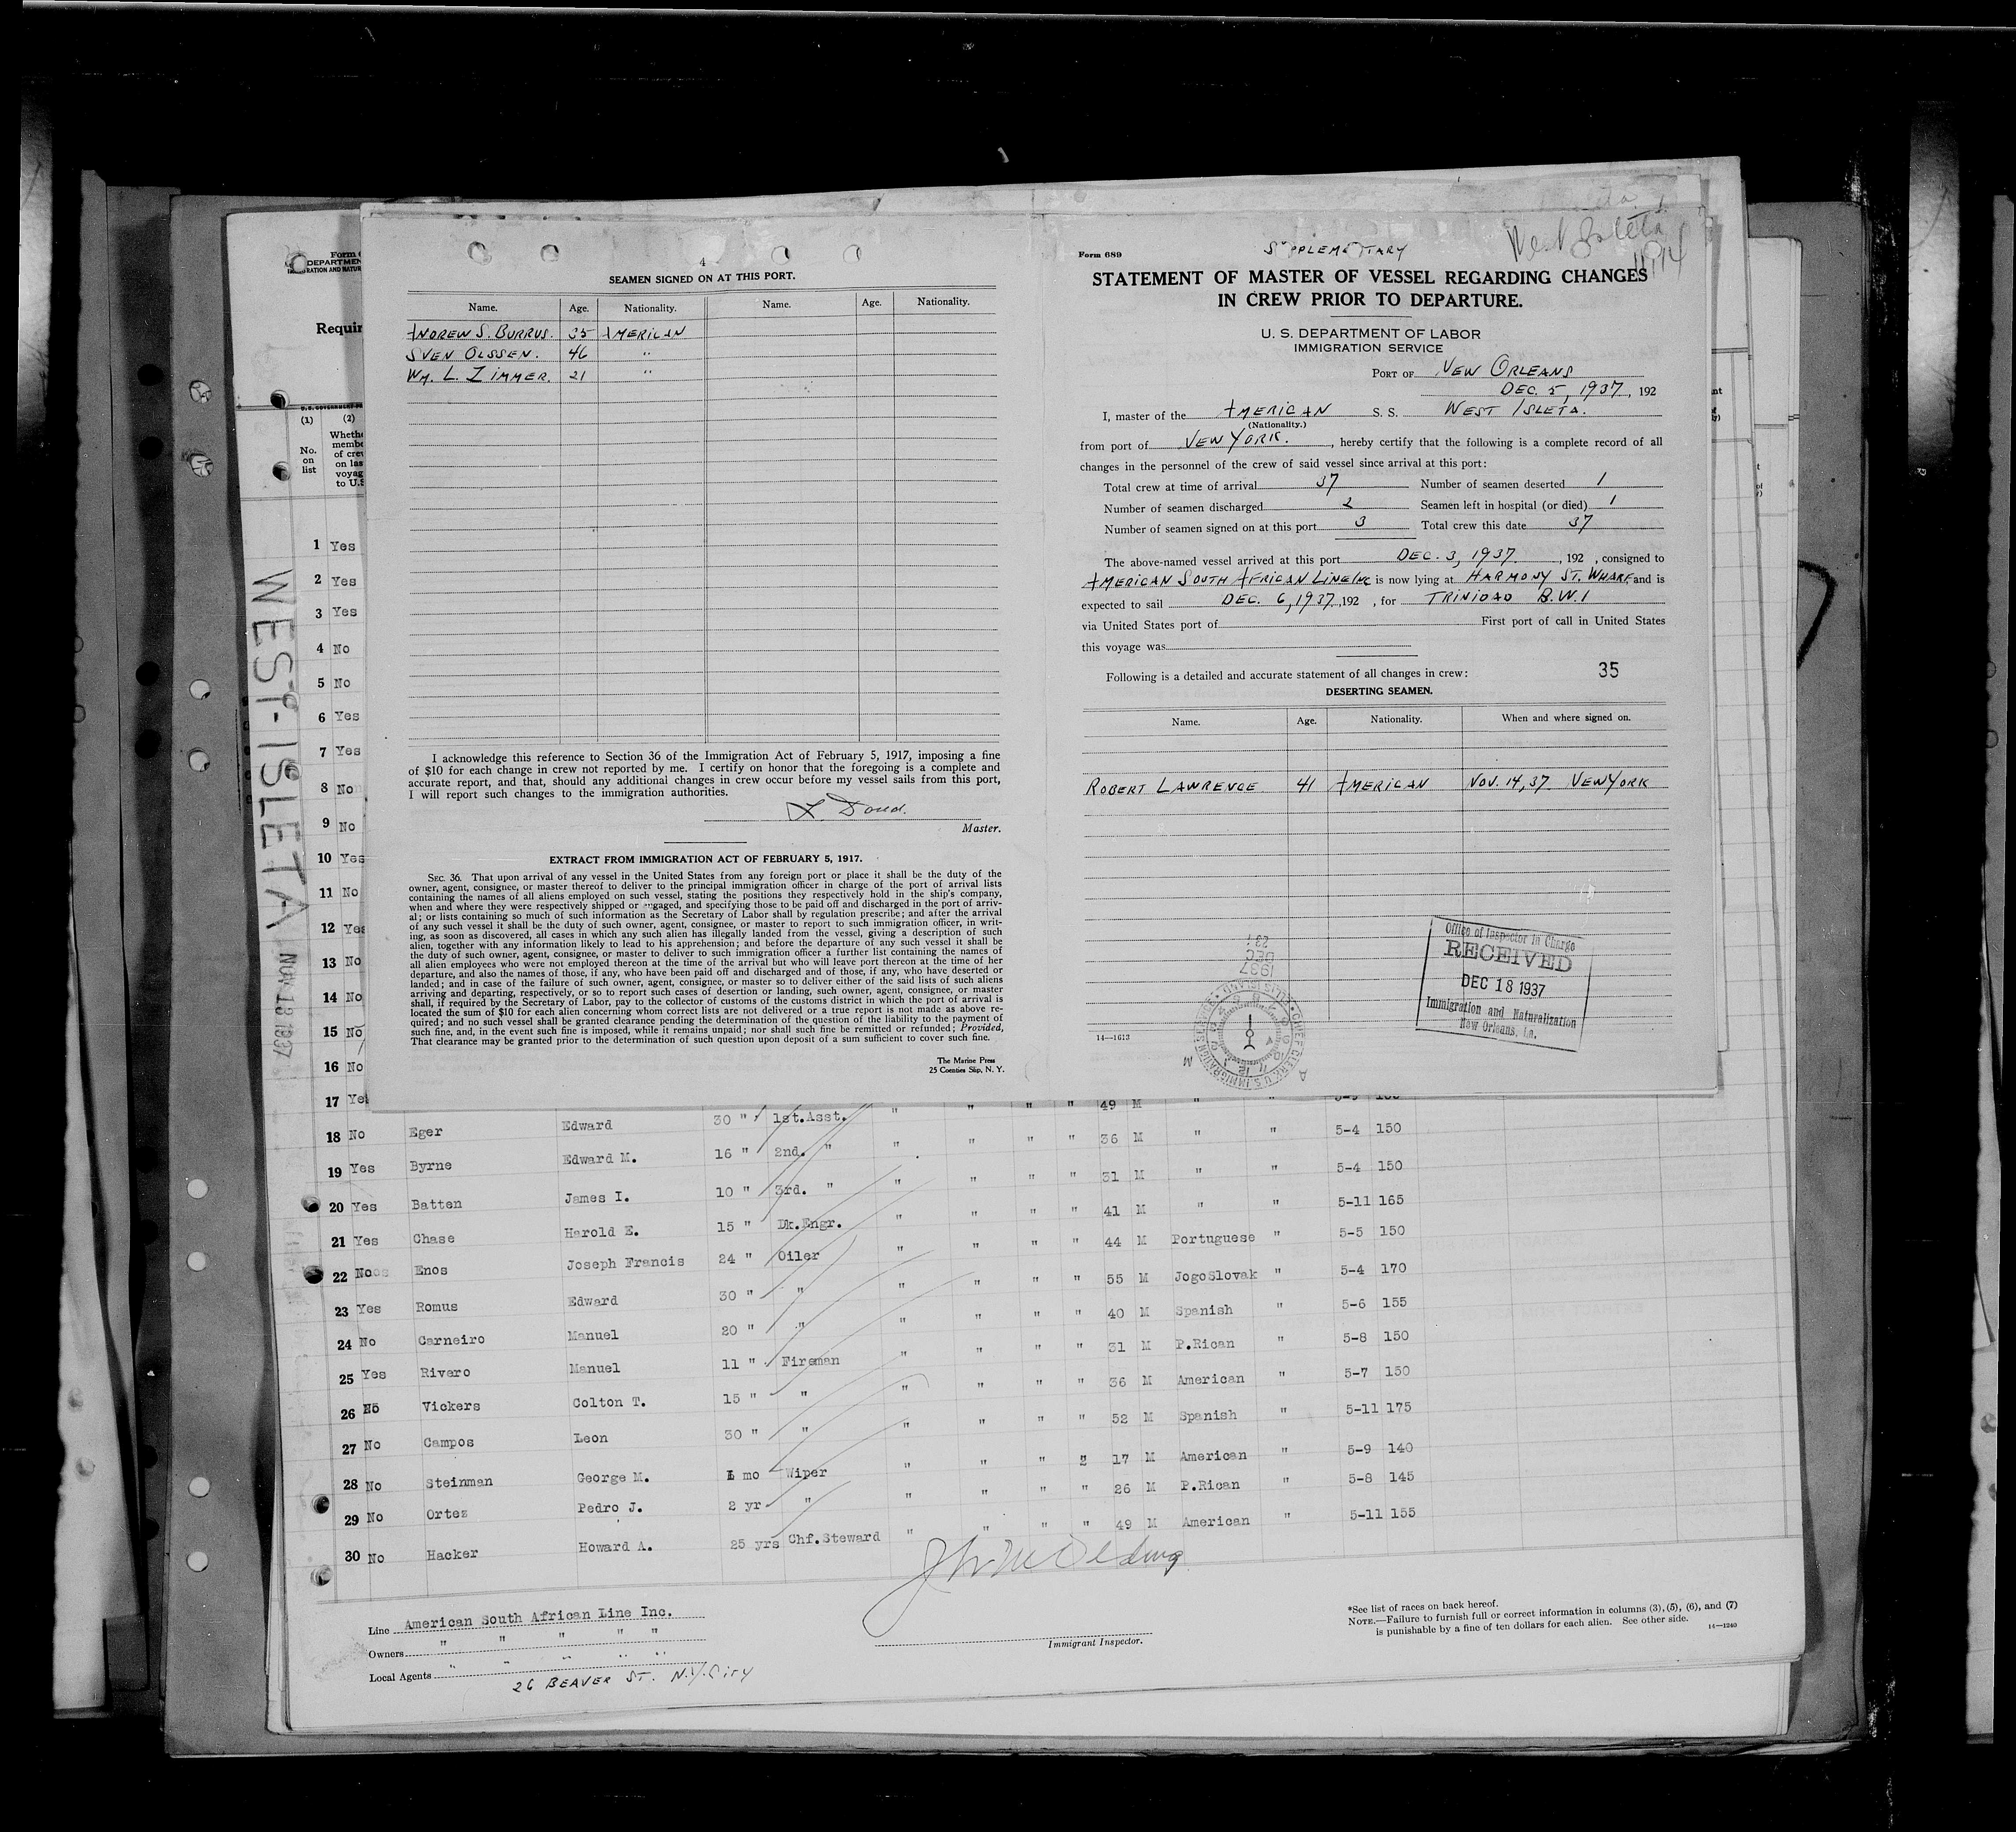 4
SEAMEN SIGNED ON AT THIS PORT.
Name. Age. Nationality. Name. Age. Nationality.
ANDREW S. BURRUS. 35 AMERICAN
SVEN OLSSEN. 46 "
WM. L. ZIMMER. 21 "
I acknowledge this reference to Section 36 of the Immigration Act of February 5, 1917, imposing a fine
of $10 for each change in crew not reported by me. I certify on honor that the foregoing is a complete and
accurate report, and that, should any additional changes in crew occur before my vessel sails from this port,
I will report such changes to the immigration authorities.
Master.
EXTRACT FROM IMMIGRATION ACT OF FEBRUARY 5, 1917.
SEC. 36. That upon arrival of any vessel in the United States from any foreign port or place it shall be the duty of the
owner, agent, consignee, or master thereof to deliver to the principal immigration officer in charge of the port of arrival lists
containing the names of all aliens employed on such vessel, stating the positions they respectively hold in the ship's company,
when and where they were respectively shipped or engaged, and specifying those to be paid off and discharged in the port of arriv-
al; or lists containing so much of such information as the Secretary of Labor shall by regulation prescribe; and after the arrival
of any such vessel it shall be the duty of such owner, agent, consignee, or master to report to such immigration officer, in writ-
ing, as soon as discovered, all cases in which any such alien has illegally landed from the vessel, giving a description of such
alien, together with any information likely to lead to his apprehension; and before the departure of any such vessel it shall be
the duty of such owner, agent, consignee, or master to deliver to such immigration officer a further list containing the names of
all alien employees who were not employed thereon at the time of the arrival but who will leave port thereon at the time of her
departure, and also the names of those, if any, who have been paid off and discharged and of those, if any, who have deserted or
landed; and in case of the failure of such owner, agent, consignee, or master so to deliver either of the said lists of such aliens
arriving and departing, respectively, or so to report such cases of desertion or landing, such owner, agent, consignee, or master
shall, if required by the Secretary of Labor, pay to the collector of customs of the customs district in which the port of arrival is
located the sum of $10 for each alien concerning whom correct lists are not delivered or a true report is not made as above re-
quired; and no such vessel shall be granted clearance pending the determination of the question of the liability to the payment of
such fine, and, in the event such fine is imposed, while it remains unpaid; nor shall such fine be remitted or refunded; Provided,
That clearance may be granted prior to the determination of such question upon deposit of a sum sufficient to cover such fine.
The Marine Press
25 Coenties Slip, N. Y.
West Isleta
11/14
Form 689
SUPPLEMENTARY
STATEMENT OF MASTER OF VESSEL REGARDING CHANGES
IN CREW PRIOR TO DEPARTURE.
U. S. DEPARTMENT OF LABOR
IMMIGRATION SERVICE
PORT OF NEW ORLEANS
DEC. 5, 1937, 192
I, master of the AMERICAN S. S. WEST ISLETA.
(Nationality.)
from port of NEW YORK. , hereby certify that the following is a complete record of all
changes in the personnel of the crew of said vessel since arrival at this port:
Total crew at time of arrival 37 Number of seamen deserted 1
Number of seamen discharged 2 Seamen left in hospital (or died) 1
Number of seamen signed on at this port 3 Total crew this date 37
The above-named vessel arrived at this port DEC. 3, 1937 , 192 , consigned to
AMERICAN SOUTH AFRICAN LINE INC is now lying at HARMONY ST. WHARF and is
expected to sail DEC. 6, 1937 , 192 , for TRINIDAD B.W.I
via United States port of First port of call in United States
this voyage was
Following is a detailed and accurate statement of all changes in crew: 35
DESERTING SEAMEN.
Name. Age. Nationality. When and where signed on.
ROBERT LAWRENCE 41 AMERICAN NOV. 14, 37 NEW YORK
Office of Inspector in Charge
RECEIVED
DEC 18 1937
Immigration and Naturalization
New Orleans, La.
1937
DEC
23
CHIEF CLERK U.S. IMMIGRATION SERVICE ELLIS ISLAND
14—1613
WEST-ISLETA NOV 13 1937
Requir
(1) (2)
No. on list
Wheth
memb
of cre
on las
voyag
to U.S
1 Yes
2 Yes
3 Yes
4 No
5 No
6 Yes
7 Yes
8 No
9 No
10 Yes
11 No
12 Yes
13 No
14 No
15 No
16 No
17 Yes 49 M
18 No Eger Edward 30 " 1st.Asst. " " " " 36 M " " 5-4 150
19 Yes Byrne Edward M. 16 " 2nd. " " " " " 31 M " " 5-4 150
20 Yes Batten James I. 10 " 3rd. " " " " " 41 M " " 5-11 165
21 Yes Chase Harold E. 15 " Dk.Engr. " " " " 44 M Portuguese " 5-5 150
22 No Enos Joseph Francis 24 " Oiler " " " " 55 M JogoSlovak " 5-4 170
23 Yes Romus Edward 30 " " " " " " 40 M Spanish " 5-6 155
24 No Carneiro Manuel 20 " " " " " " 31 M P.Rican " 5-8 150
25 Yes Rivero Manuel 11 " Fireman " " " " 36 M American " 5-7 150
26 No Vickers Colton T. 15 " " " " " " 52 M Spanish " 5-11 175
27 No Campos Leon 30 " " " " " " 17 M American " 5-9 140
28 No Steinman George M. 1 mo Wiper " " " " 26 M P.Rican " 5-8 145
29 No Ortez Pedro J. 2 yr " " " " " 49 M American " 5-11 155
30 No Hacker Howard A. 25 yrs Chf.Steward
Line American South African Line Inc.
Owners " " " " "
Local Agents " " " " "
26 BEAVER ST. N.Y.CITY
Immigrant Inspector.
*See list of races on back hereof.
NOTE.—Failure to furnish full or correct information in columns (3), (5), (6), and (7)
is punishable by a fine of ten dollars for each alien. See other side.
14—1240